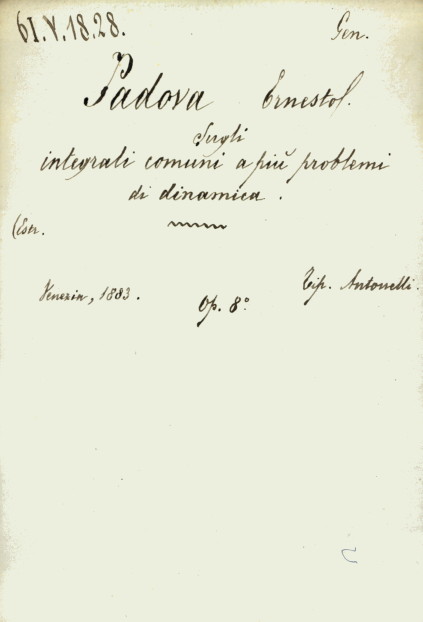 61.V.18.28. Gen.
Padova Ernesto.
Sugli
integrali comuni a più problemi
di dinamica.
(Estr.
Venezia, 1883. Op. 8° Tip. Antonelli.